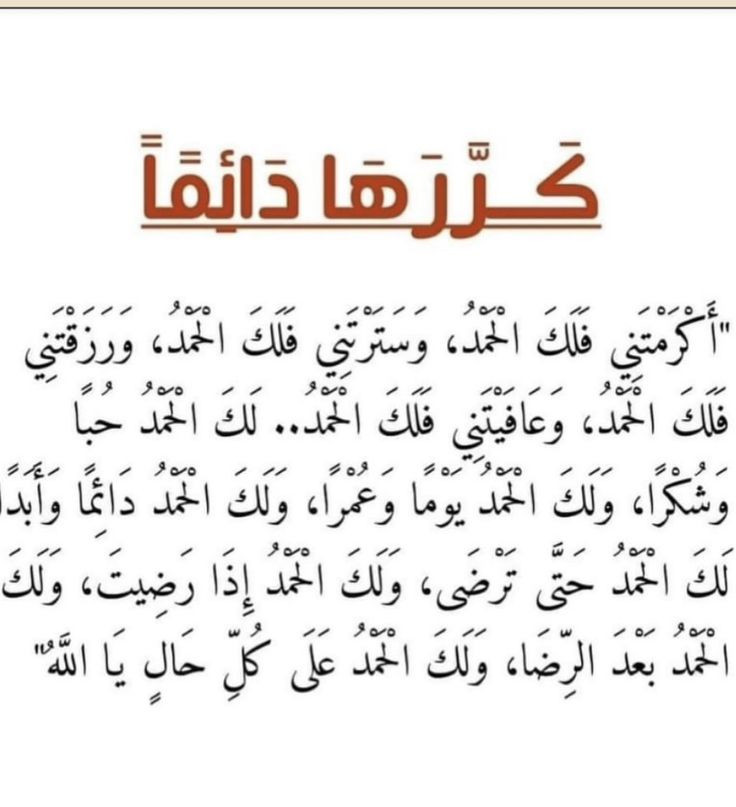 كَرَّرَهَا دَائِمًاً
"أَكْرَمْتَنِي فَلَكَ الْحَمْدُ، وَسَتَرْتَنِي فَلَكَ الْحَمْدُ، وَرَزَقْتَنِي
فَلَكَ الْحَمْدُ، وَعَافَيْتَنِي فَلَكَ الْحَمْدُ.. لَكَ الْحَمْدُ حُبًا
وَشُكْرًا، وَلَكَ الْحَمْدُ يَوْمًا وَعُمْرًا، وَلَكَ الْحَمْدُ دَائِمًا وَأَبَدًا
لَكَ الْحَمْدُ حَتَّى تَرْضَى، وَلَكَ الْحَمْدُ إِذَا رَضِيتَ، وَلَكَ
الْحَمْدُ بَعْدَ الرِّضَا، وَلَكَ الْحَمْدُ عَلَى كُلِّ حَالٍ يَا اللَّهُ"